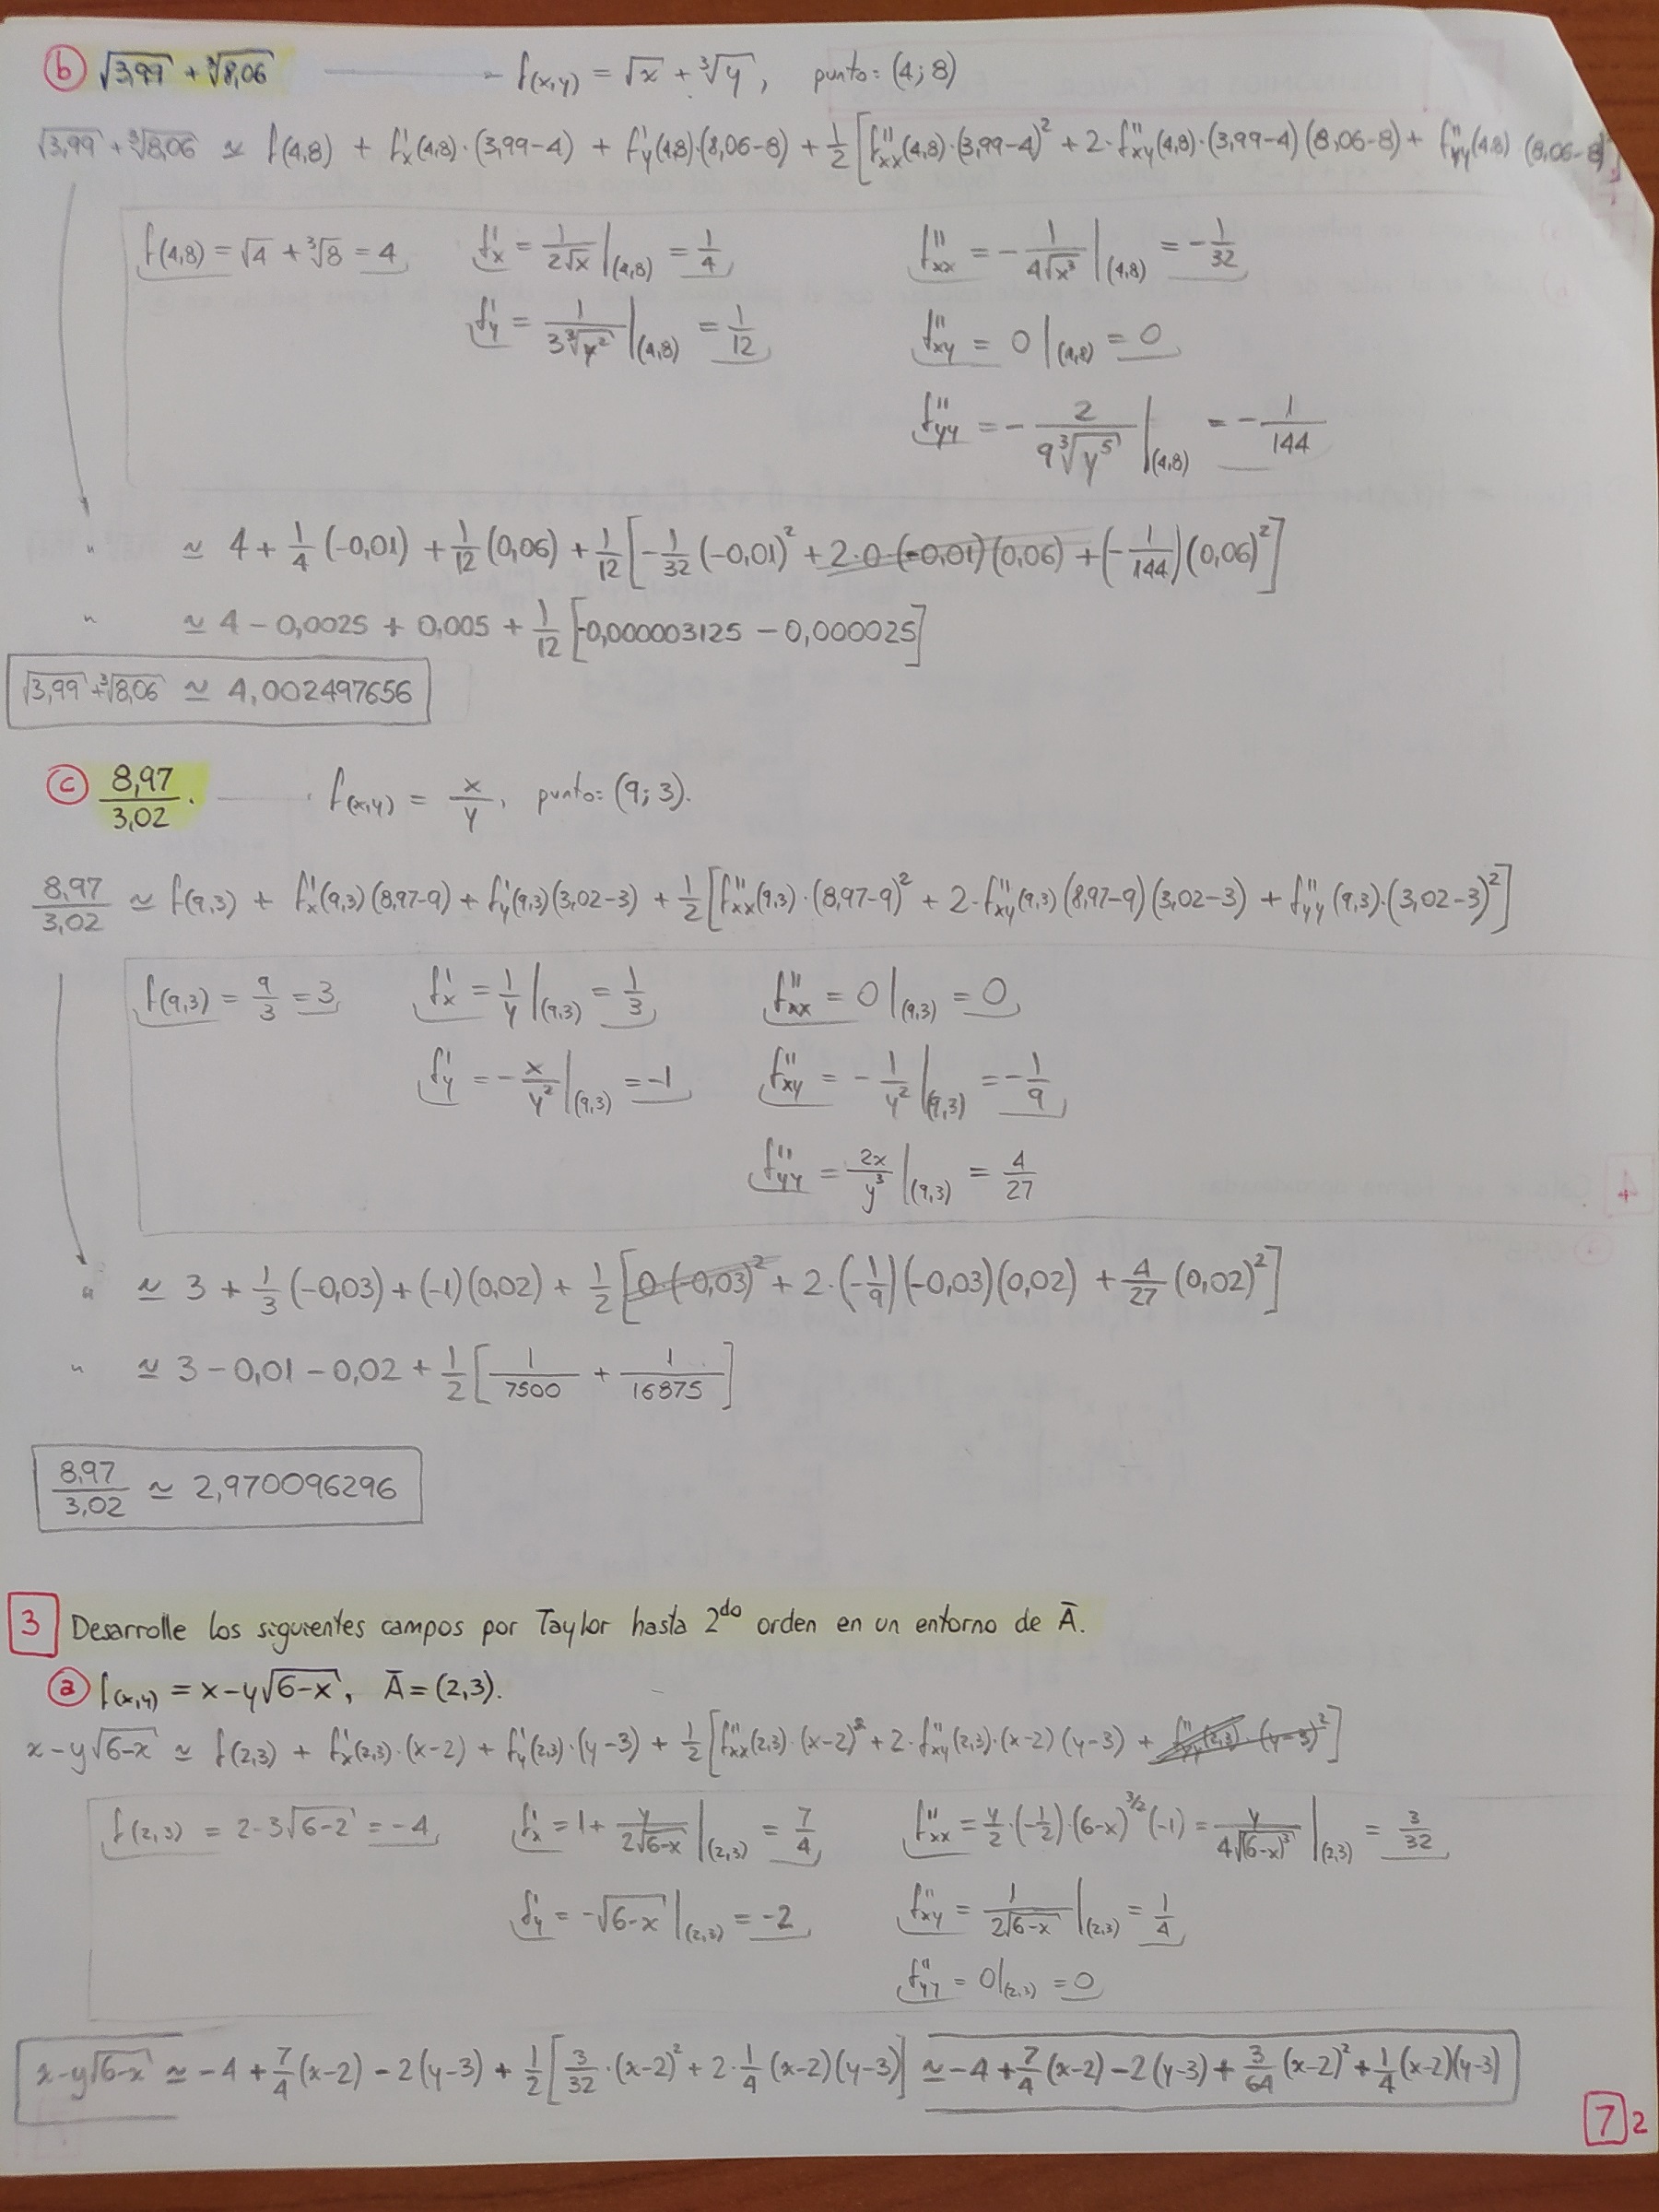 b) √3,99 + ³√8,06 — f(x,y) = √x + ³√y, punto: (4; 8)
√3,99 + ³√8,06 ≃ f(4,8) + f'x(4,8)·(3,99-4) + f'y(4,8)·(8,06-8) + 1/2 [f''xx(4,8)·(3,99-4)² + 2·f''xy(4,8)·(3,99-4)(8,06-8) + f''yy(4,8) (8,06-8)²]
f(4,8) = √4 + ³√8 = 4 f'x = 1/(2√x) |(4,8) = 1/4 f''xx = - 1/(4√x³) |(4,8) = - 1/32
f'y = 1/(3³√y²) |(4,8) = 1/12 f''xy = 0 |(4,8) = 0
f''yy = - 2/(9³√y⁵) |(4,8) = - 1/144
" ≃ 4 + 1/4 (-0,01) + 1/12 (0,06) + 1/12 [- 1/32 (-0,01)² + 2·0 (-0,01)(0,06) + (- 1/144)(0,06)²]
" ≃ 4 - 0,0025 + 0,005 + 1/12 [-0,000003125 - 0,000025]
√3,99 + ³√8,06 ≃ 4,002497656
c) 8,97/3,02. — f(x,y) = x/y, punto: (9; 3).
8,97/3,02 ≃ f(9,3) + f'x(9,3)(8,97-9) + f'y(9,3)(3,02-3) + 1/2 [f''xx(9,3)·(8,97-9)² + 2·f''xy(9,3)(8,97-9)(3,02-3) + f''yy(9,3)·(3,02-3)²]
f(9,3) = 9/3 = 3 f'x = 1/y |(9,3) = 1/3 f''xx = 0 |(9,3) = 0
f'y = - x/y² |(9,3) = -1 f''xy = - 1/y² |(9,3) = - 1/9
f''yy = 2x/y³ |(9,3) = 4/27
" ≃ 3 + 1/3 (-0,03) + (-1)(0,02) + 1/2 [0(-0,03)² + 2·(- 1/9)(-0,03)(0,02) + 4/27 (0,02)²]
" ≃ 3 - 0,01 - 0,02 + 1/2 [1/7500 + 1/16875]
8,97/3,02 ≃ 2,970096296
3 Desarrolle los siguientes campos por Taylor hasta 2do orden en un entorno de Ā.
a) f(x,y) = x-y√6-x, Ā = (2,3).
x-y√6-x ≃ f(2,3) + f'x(2,3)·(x-2) + f'y(2,3)·(y-3) + 1/2 [f''xx(2,3)·(x-2)² + 2·f''xy(2,3)·(x-2)(y-3) + f''yy(2,3)·(y-3)²]
f(2,3) = 2-3√6-2 = -4 f'x = 1 + y/(2√6-x) |(2,3) = 7/4 f''xx = y/2·(-1/2)·(6-x)^3/2(-1) = y/(4√(6-x)³) |(2,3) = 3/32
f'y = -√6-x |(2,3) = -2 f''xy = 1/(2√6-x) |(2,3) = 1/4
f''yy = 0|(2,3) = 0
x-y√6-x ≃ -4 + 7/4 (x-2) - 2(y-3) + 1/2 [3/32·(x-2)² + 2·1/4 (x-2)(y-3)] ≃ -4 + 7/4 (x-2) - 2(y-3) + 3/64 (x-2)² + 1/4 (x-2)(y-3)
7 2